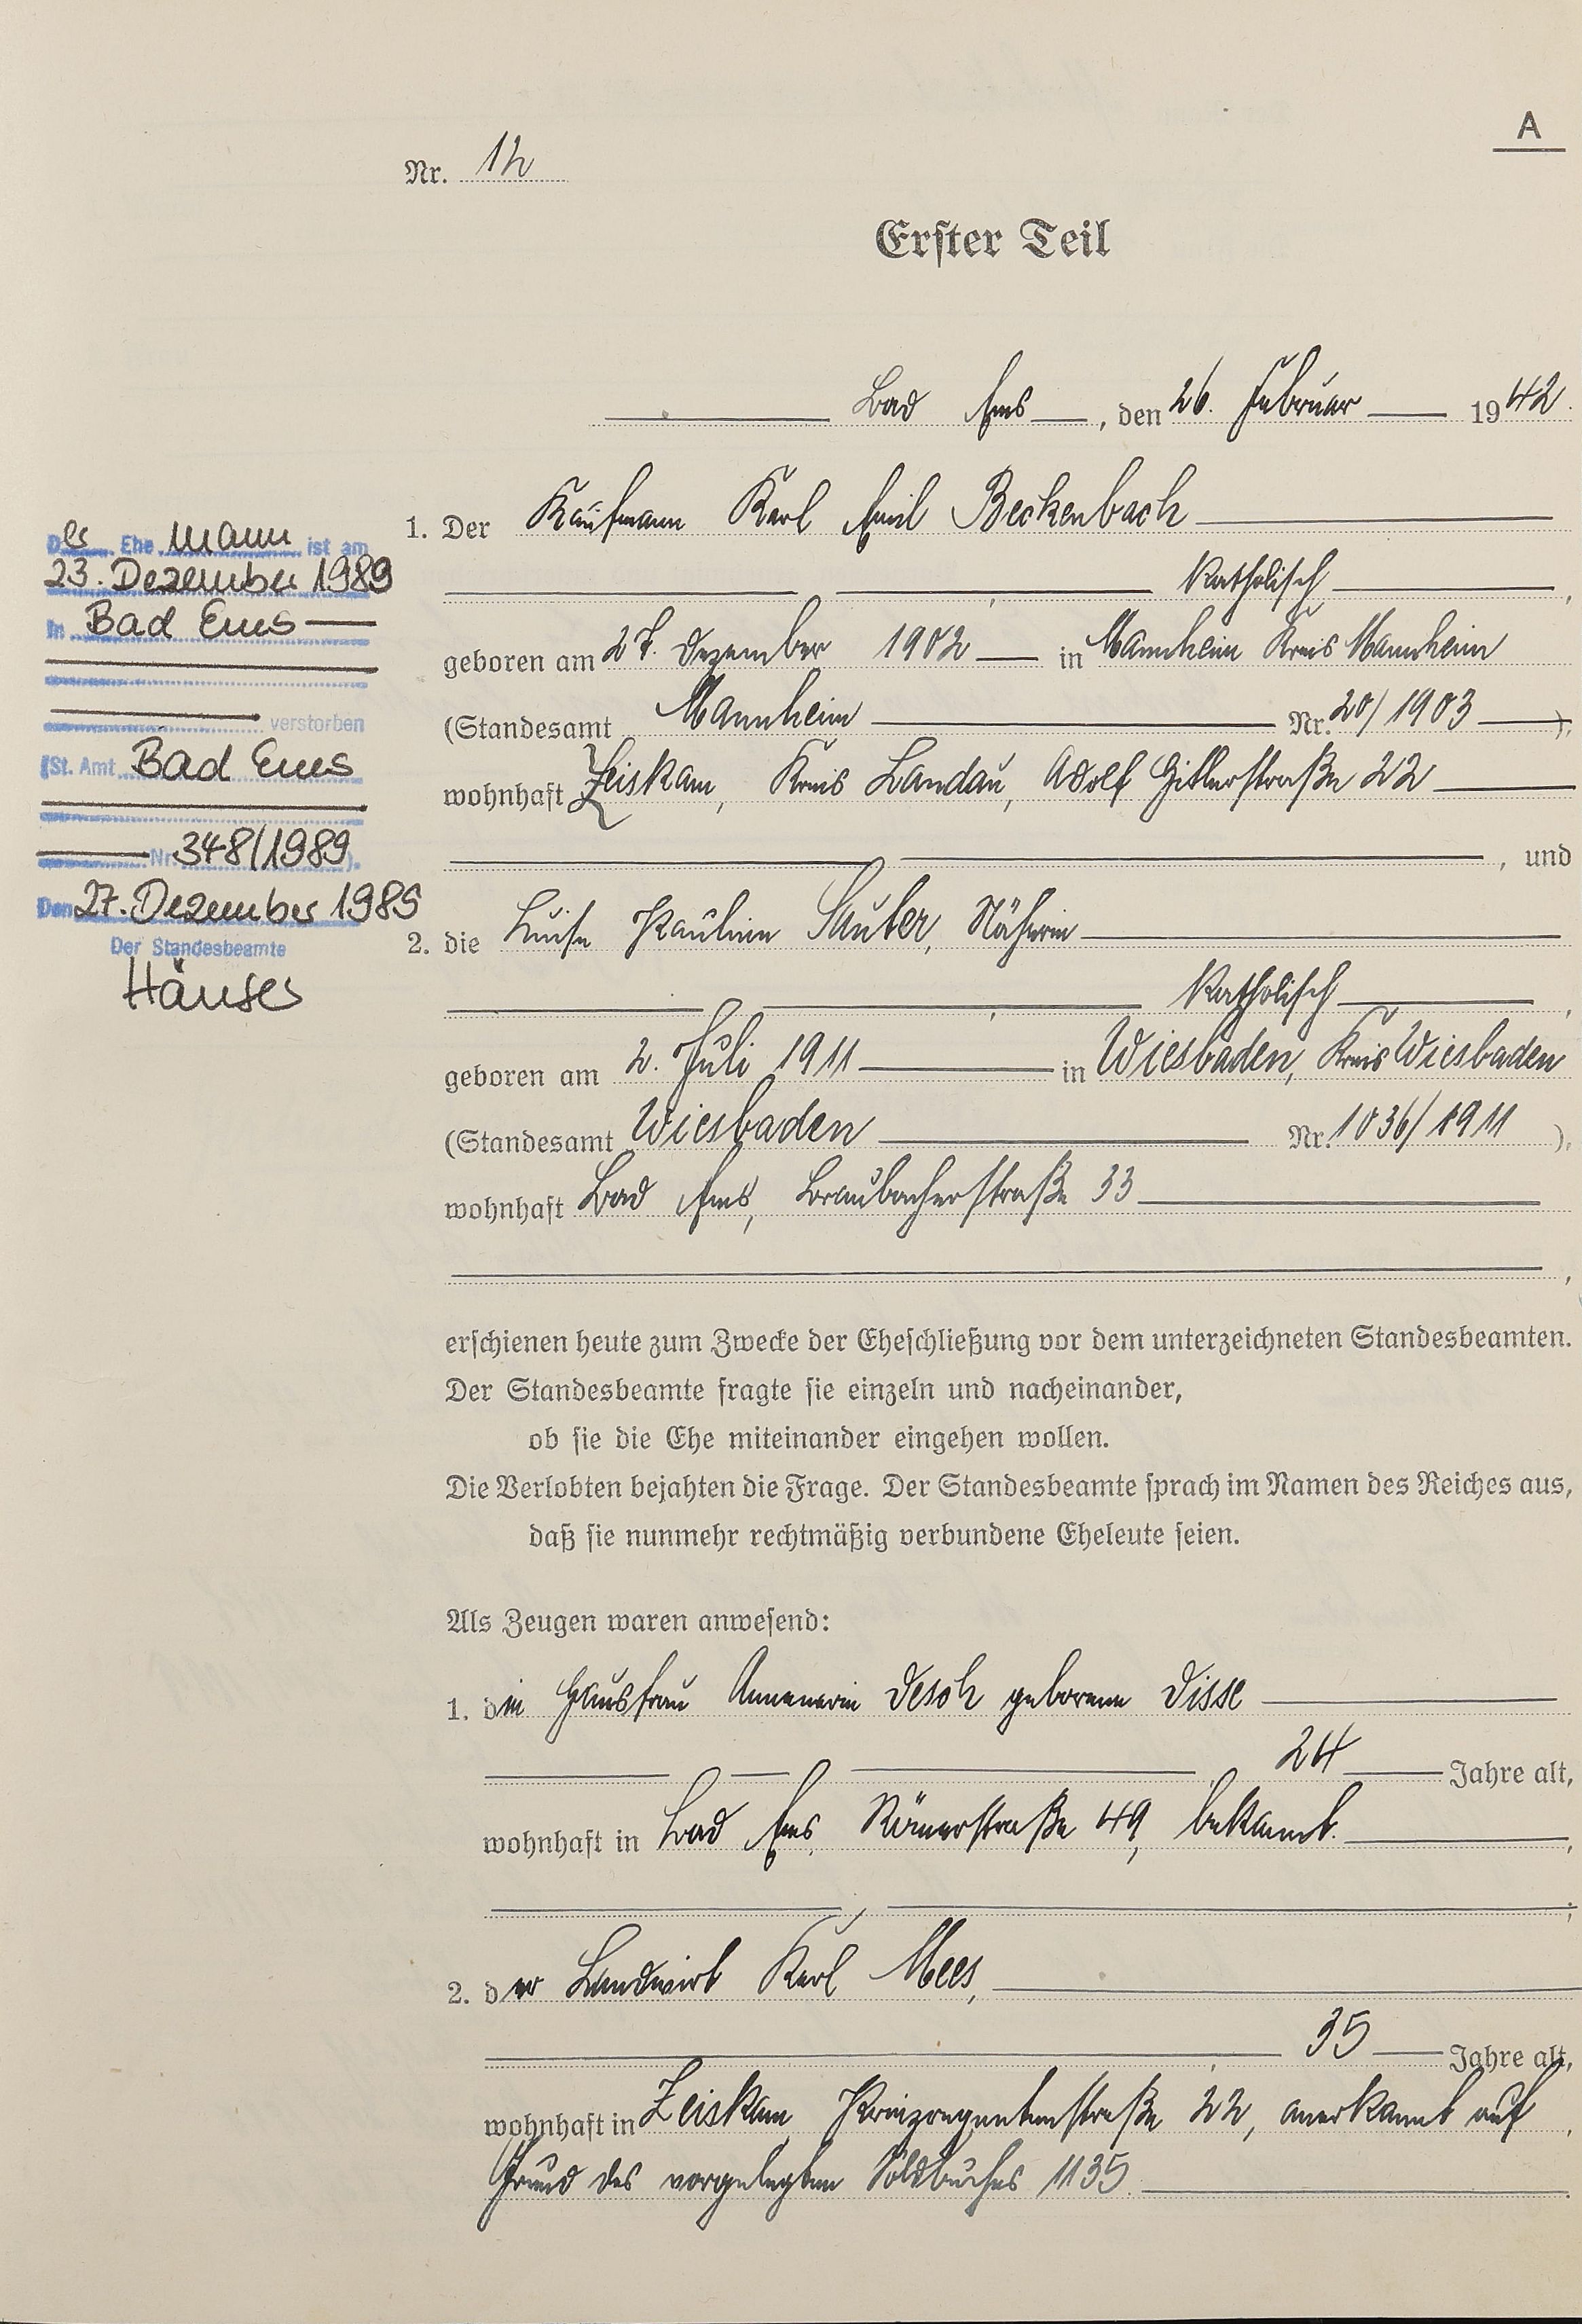 A
Nr. 12
Erster Teil
Bad Ems, den 26. Februar 1942.
1. Der Kaufmann Karl Emil Beckenbach
, katholisch,
geboren am 27. Dezember 1902 in Mannheim Kreis Mannheim
(Standesamt Mannheim Nr. 20/1903),
wohnhaft Zeiskam, Kreis Landau, Adolf Hitlerstraße 22
, und
2. die Luise Pauline Sauber, Näherin
, katholisch,
geboren am 2. Juli 1911 in Wiesbaden, Kreis Wiesbaden
(Standesamt Wiesbaden Nr. 1036/1911),
wohnhaft Bad Ems, Braubacherstraße 33
,
erschienen heute zum Zwecke der Eheschließung vor dem unterzeichneten Standesbeamten.
Der Standesbeamte fragte sie einzeln und nacheinander,
ob sie die Ehe miteinander eingehen wollen.
Die Verlobten bejahten die Frage. Der Standesbeamte sprach im Namen des Reiches aus,
daß sie nunmehr rechtmäßig verbundene Eheleute seien.
Als Zeugen waren anwesend:
1. die Hausfrau Annemarie Desch geborene Disse
, 24 Jahre alt,
wohnhaft in Bad Ems, Römerstraße 49, bekannt.,
;
2. der Landwirt Karl Mees,
, 35 Jahre alt,
wohnhaft in Zeiskam, Prinzregentenstraße 22, anerkannt auf,
Grund des vorgelegten Soldbuches 1135.
Der Ehe mann ist am
23. Dezember 1989
in Bad Ems
verstorben
(St. Amt Bad Ems
Nr. 348/1989).
Den 27. Dezember 1989
Der Standesbeamte
Häuser